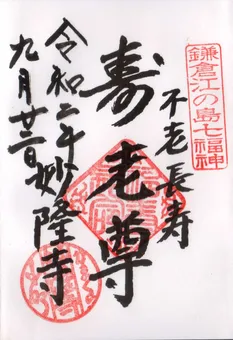 鎌倉江の島七福神
不老長寿
寿老尊
妙隆寺
令和二年
九月廿二日